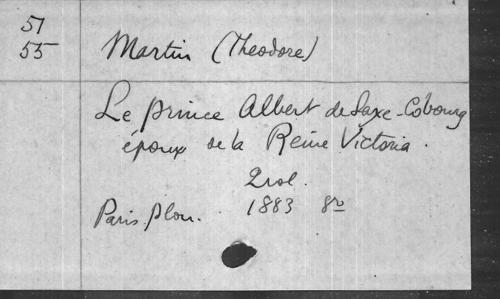 51
55
Martin (Theodore)
Le prince Albert de Saxe-Cobourg
époux de la Reine Victoria.
2 vol.
Paris Plon. 1883 8vo